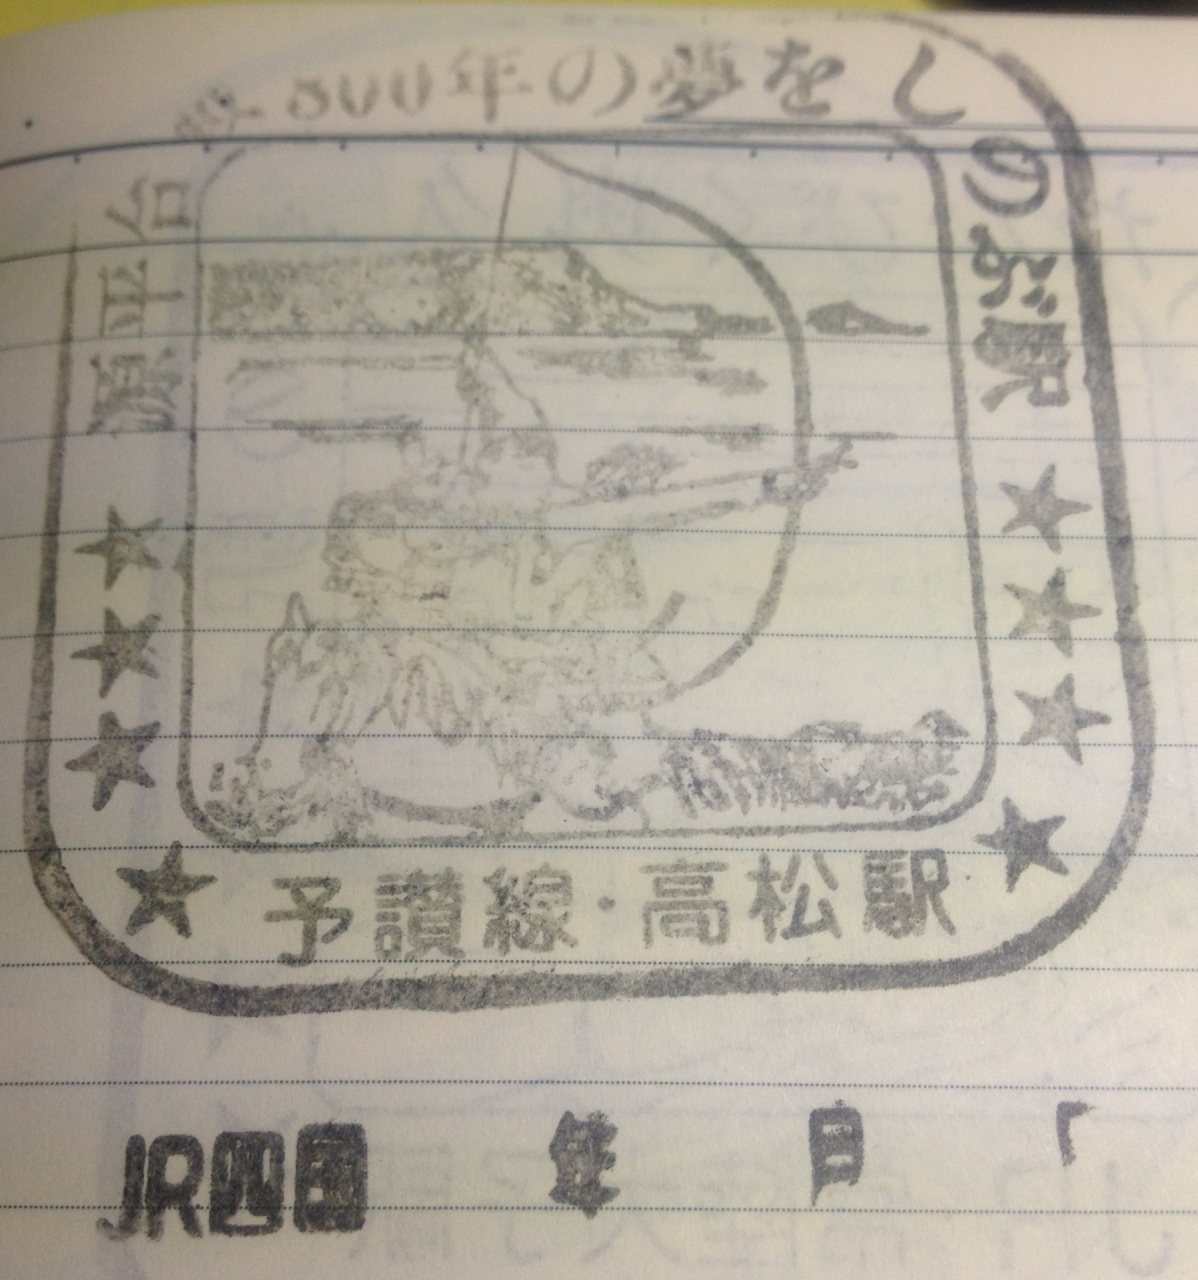 源平合戦 800年の夢をしのぶ駅
予讃線・高松駅
JR四国 年 月